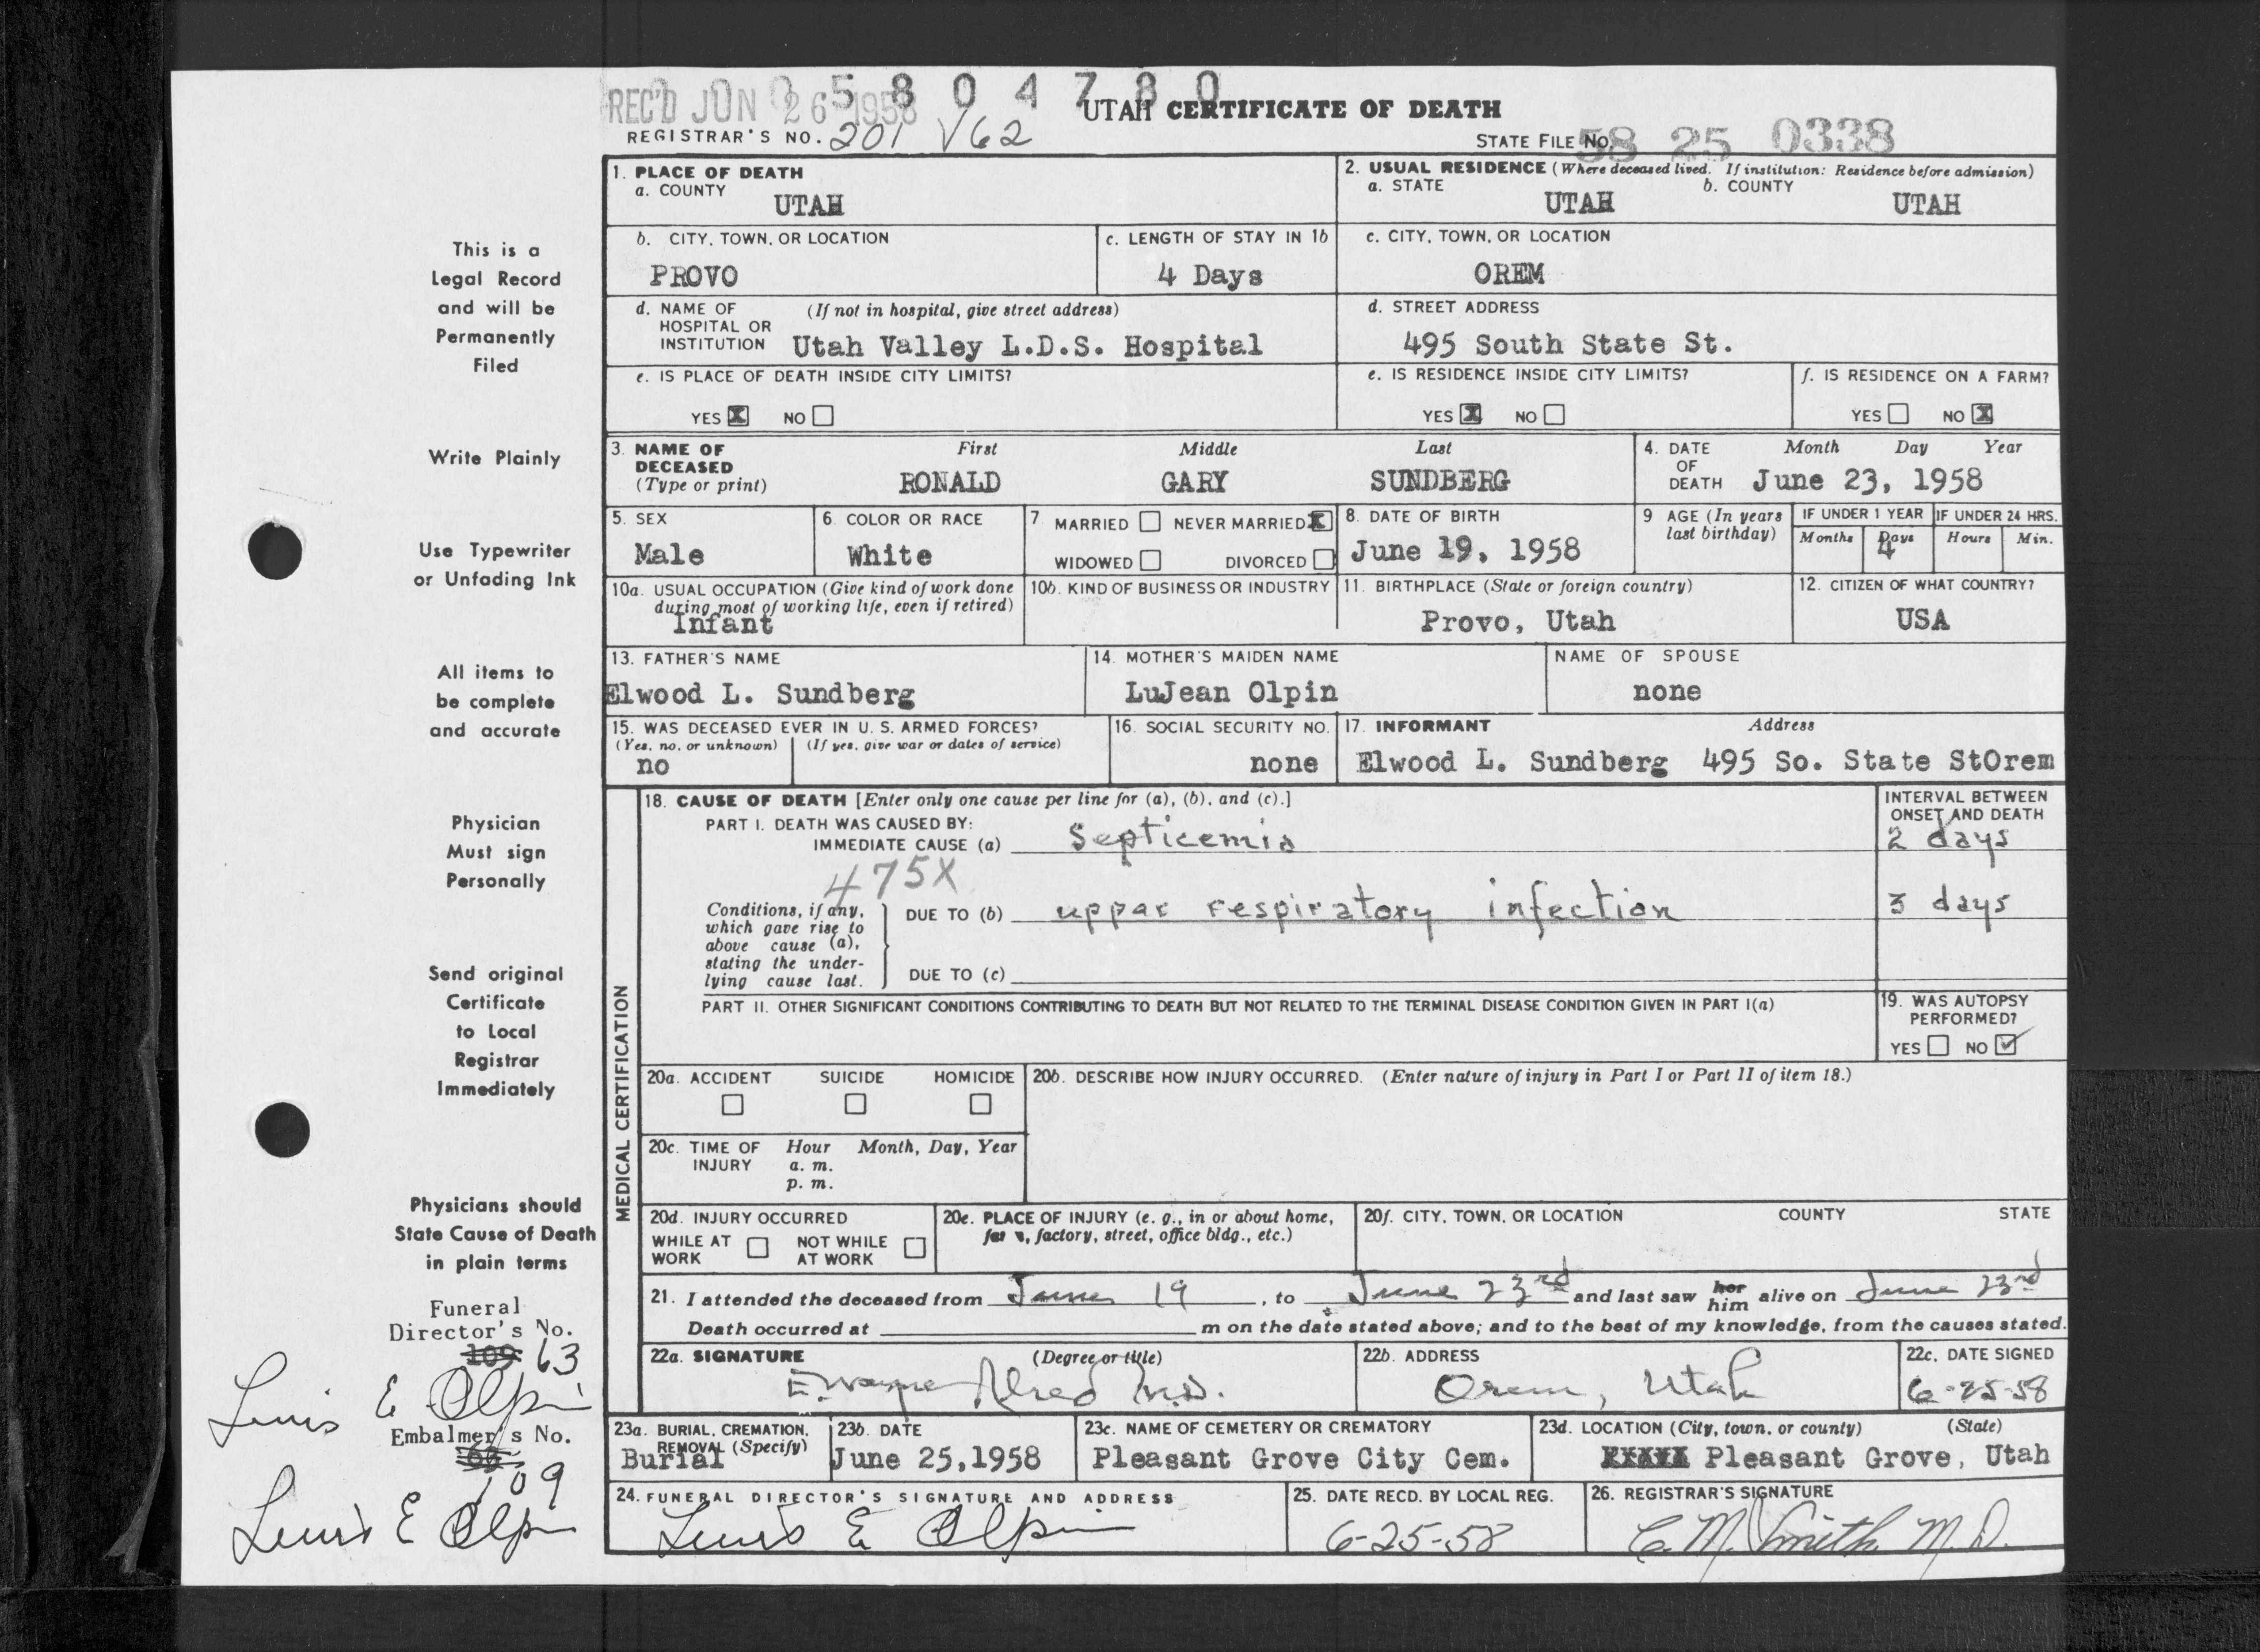 REC'D JUN 26 1958 5 8 0 4 7 8 0
UTAH CERTIFICATE OF DEATH
REGISTRAR'S NO. 201 √62
STATE FILE NO. 58 25 0338
This is a
Legal Record
and will be
Permanently
Filed
Write Plainly
Use Typewriter
or Unfading Ink
All items to
be complete
and accurate
Physician
Must sign
Personally
Send original
Certificate
to Local
Registrar
Immediately
Physicians should
State Cause of Death
in plain terms
Funeral
Director's No.
109 63
Lewis E Olpin
Embalmer's No.
109
Lewis E Olpin
1. PLACE OF DEATH
a. COUNTY
UTAH
2. USUAL RESIDENCE (Where deceased lived. If institution: Residence before admission)
a. STATE b. COUNTY
UTAH UTAH
b. CITY, TOWN, OR LOCATION
PROVO
c. LENGTH OF STAY IN 1b
4 Days
c. CITY, TOWN, OR LOCATION
OREM
d. NAME OF (If not in hospital, give street address)
HOSPITAL OR
INSTITUTION Utah Valley L.D.S. Hospital
d. STREET ADDRESS
495 South State St.
e. IS PLACE OF DEATH INSIDE CITY LIMITS?
YES X NO
e. IS RESIDENCE INSIDE CITY LIMITS?
YES X NO
f. IS RESIDENCE ON A FARM?
YES NO X
3. NAME OF First Middle Last
DECEASED
(Type or print) RONALD GARY SUNDBERG
4. DATE Month Day Year
OF
DEATH June 23, 1958
5. SEX
Male
6. COLOR OR RACE
White
7 MARRIED NEVER MARRIED X
WIDOWED DIVORCED
8. DATE OF BIRTH
June 19, 1958
9 AGE (In years
last birthday)
IF UNDER 1 YEAR IF UNDER 24 HRS.
Months Days Hours Min.
4
10a. USUAL OCCUPATION (Give kind of work done
during most of working life, even if retired)
Infant
10b. KIND OF BUSINESS OR INDUSTRY
11. BIRTHPLACE (State or foreign country)
Provo, Utah
12. CITIZEN OF WHAT COUNTRY?
USA
13. FATHER'S NAME
Elwood L. Sundberg
14. MOTHER'S MAIDEN NAME
LuJean Olpin
NAME OF SPOUSE
none
15. WAS DECEASED EVER IN U. S. ARMED FORCES?
(Yes, no, or unknown) (If yes, give war or dates of service)
no
16. SOCIAL SECURITY NO.
none
17. INFORMANT Address
Elwood L. Sundberg 495 So. State StOrem
MEDICAL CERTIFICATION
18. CAUSE OF DEATH [Enter only one cause per line for (a), (b), and (c).]
INTERVAL BETWEEN
ONSET AND DEATH
PART I. DEATH WAS CAUSED BY:
IMMEDIATE CAUSE (a) Septicemia 2 days
475X
Conditions, if any,
which gave rise to
above cause (a),
stating the under-
lying cause last.
DUE TO (b) upper respiratory infection 3 days
DUE TO (c)
PART II. OTHER SIGNIFICANT CONDITIONS CONTRIBUTING TO DEATH BUT NOT RELATED TO THE TERMINAL DISEASE CONDITION GIVEN IN PART I(a)
19. WAS AUTOPSY
PERFORMED?
YES NO ✓
20a. ACCIDENT SUICIDE HOMICIDE
20b. DESCRIBE HOW INJURY OCCURRED. (Enter nature of injury in Part I or Part II of item 18.)
20c. TIME OF Hour Month, Day, Year
INJURY a. m.
p. m.
20d. INJURY OCCURRED
WHILE AT NOT WHILE
WORK AT WORK
20e. PLACE OF INJURY (e. g., in or about home,
farm, factory, street, office bldg., etc.)
20f. CITY, TOWN, OR LOCATION COUNTY STATE
21. I attended the deceased from June 19, to June 23rd and last saw her him alive on June 23rd
Death occurred at m on the date stated above; and to the best of my knowledge, from the causes stated.
22a. SIGNATURE (Degree or title)
E. Wayne Allred M.D.
22b. ADDRESS
Orem, Utah
22c. DATE SIGNED
6-25-58
23a. BURIAL, CREMATION,
REMOVAL (Specify)
Burial
23b. DATE
June 25,1958
23c. NAME OF CEMETERY OR CREMATORY
Pleasant Grove City Cem.
23d. LOCATION (City, town, or county) (State)
Pleasant Grove, Utah
24. FUNERAL DIRECTOR'S SIGNATURE AND ADDRESS
Lewis E Olpin
25. DATE RECD. BY LOCAL REG.
6-25-58
26. REGISTRAR'S SIGNATURE
C. M. Smith M. D.